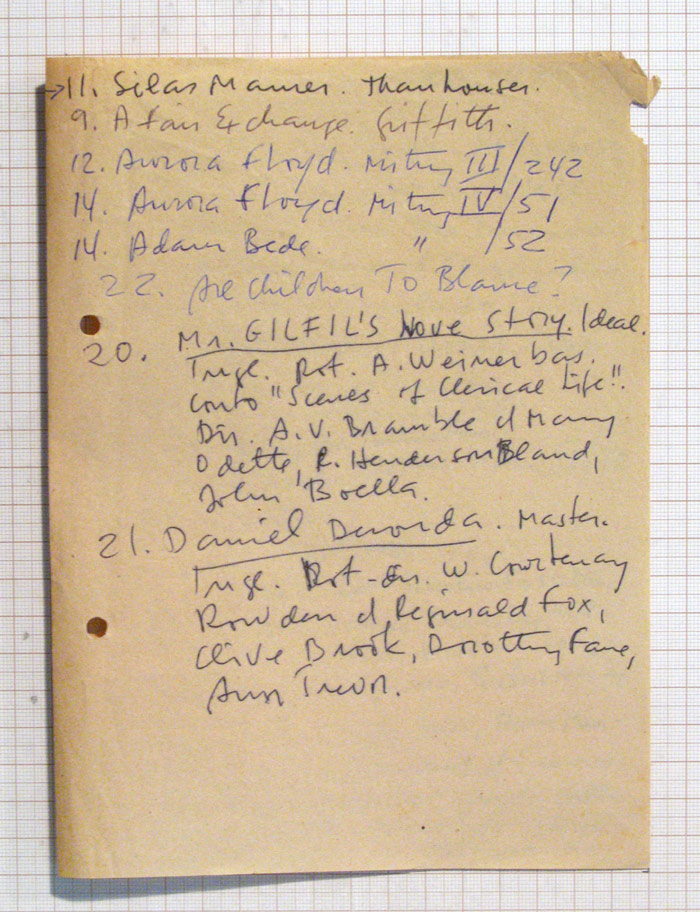 →11. Silas Marner. Thanhouser.
9. A fair Exchange. Griffith.
12. Aurora Floyd. Mitry III/242
14. Aurora Floyd. Mitry IV/51
14. Adam Bede. " /52
22. Are Children To Blame?
20. Mr. GILFIL'S Love Story. Ideal.
Ingl. Rot. A. Weiner bas.
conto "Scenes of Clerical Life".
Dir. A.V. Bramble cl Mary
Odette, R. Henderson Bland,
John Boella.
21. Daniel Deronda. Master.
Ingl. Rot-dir. W. Courtenay
Rowden cl Reginald Fox,
Clive Brook, Dorothy Fane,
Ann Trevor.